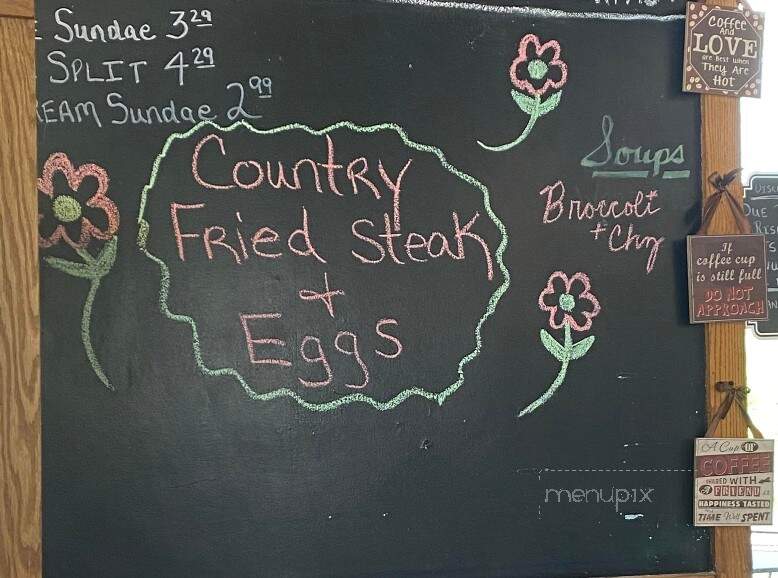 Sundae 3 29
SPLIT 4 29
EAM Sundae 2 99
Country
Fried Steak
+
Eggs
Soups
Broccoli
+ Chz
Coffee
And
LOVE
are Best when
They Are
Hot
If
coffee cup
is still full
DO NOT
APPROACH
A Cup OF
COFFEE
SHARED WITH
A FRIEND IS
HAPPINESS TASTED
TIME Well SPENT
menupix